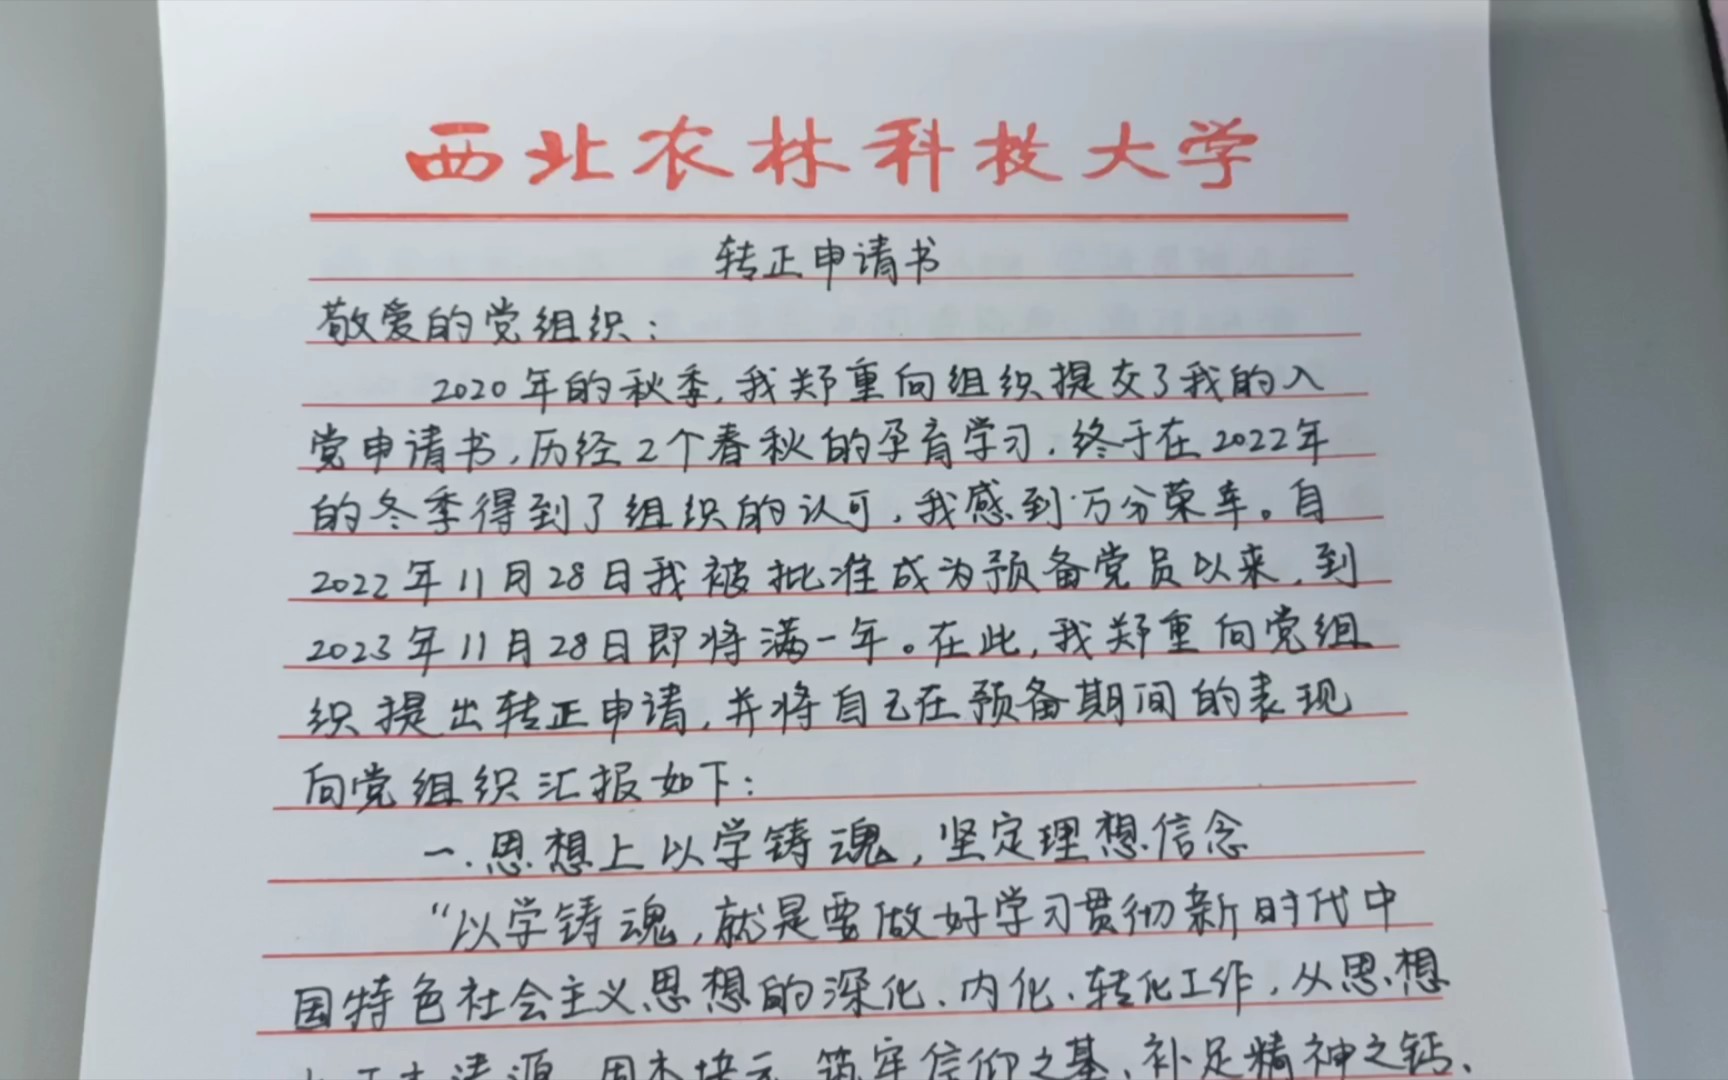 西北农林科技大学
转正申请书
敬爱的党组织：
2020年的秋季,我郑重向组织提交了我的入
党申请书,历经2个春秋的孕育学习,终于在2022年
的冬季得到了组织的认可,我感到万分荣幸。自
2022年11月28日我被批准成为预备党员以来,到
2023年11月28日即将满一年。在此,我郑重向党组
织提出转正申请,并将自己在预备期间的表现
向党组织汇报如下：
一.思想上以学铸魂,坚定理想信念
“以学铸魂,就是要做好学习贯彻新时代中
国特色社会主义思想的深化、内化、转化工作,从思想
上正本清源、固本培元,筑牢信仰之基、补足精神之钙、